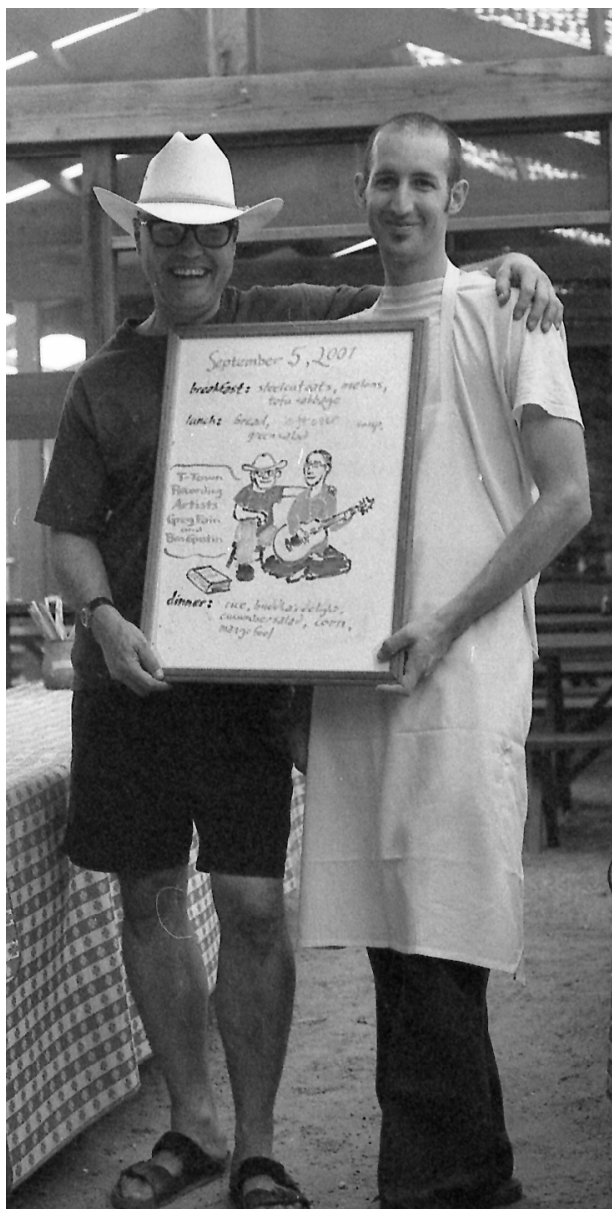 September 5, 2001
breakfast: steelcut oats, melons,
tofu cabbage
lunch: bread, soup,
green salad
T-Town
Recording
Artists
Greg Fain
and
Ben Gustin
dinner: rice, buddha's delight,
cucumber salad, corn,